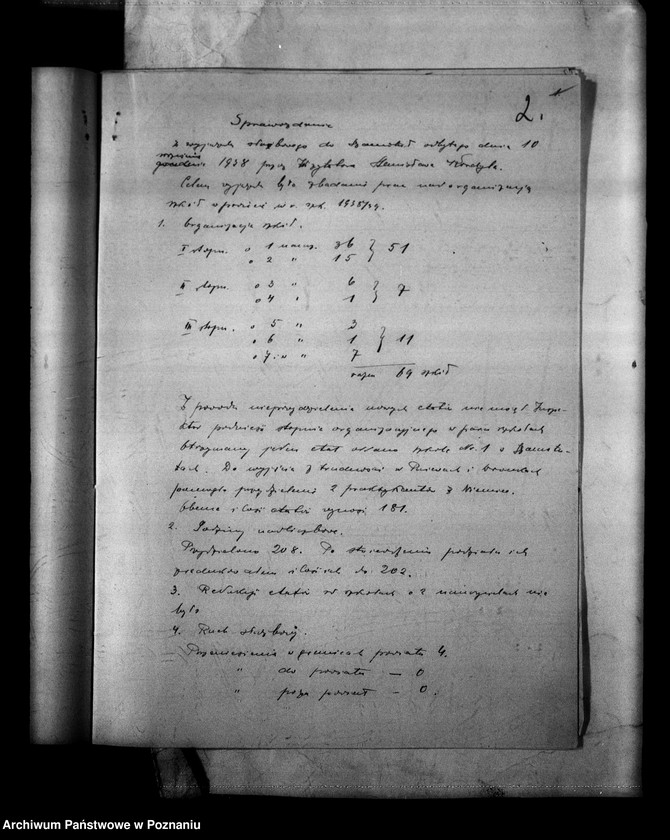 2.
Sprawozdanie
z wyjazdu służbowego do Szamotuł odbytego dnia 10
września
1938 przez Stanisława
Celem wyjazdu było zbadanie prac nad organizacją
szkół w powiecie w r. szk. 1938/39.
1. Organizacja szkół.
I stopn. o 1 naucz. 36 } 51
o 2 " 15
II stopn. o 3 " 6 } 7
o 4 " 1
III stopn. o 5 " 3
o 6 " 1 } 11
o 7 i w " 7
razem 69 szkół
Z powodu nieprzydzielenia nowych etatów nie mógł Inspe-
ktor podnieść stopnia organizacyjnego w paru szkołach
Otrzymany jeden etat szkole Nr. 1 w Szamotu-
łach. Do wyjścia z trudności w Pniewach i Wronkach
pomogło przydzielenie 2 praktykantów z
Obecna ilość etatów wynosi 181.
2. Godziny nadliczbowe.
Przydzielono 208. Po stwierdzeniu podziału ich
zredukowałem ilość ich do 202.
3. Redukcji etatów w szkołach o 2 nauczycielach nie
było
4. Ruch służbowy.
Przeniesienia w granicach powiatu 4.
" do powiatu — 0
" poza powiat — 0.
Archiwum Państwowe w Poznaniu